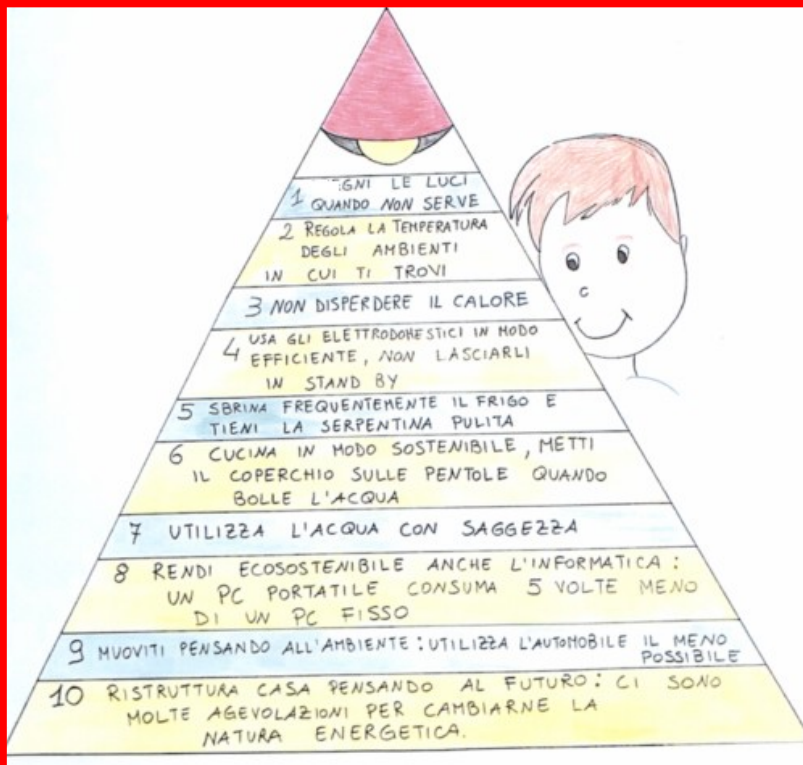 1 GNI LE LUCI
QUANDO NON SERVE
2 REGOLA LA TEMPERATURA
DEGLI AMBIENTI
IN CUI TI TROVI
3 NON DISPERDERE IL CALORE
4 USA GLI ELETTRODOMESTICI IN MODO
EFFICIENTE, NON LASCIARLI
IN STAND BY
5 SBRINA FREQUENTEMENTE IL FRIGO E
TIENI LA SERPENTINA PULITA
6 CUCINA IN MODO SOSTENIBILE, METTI
IL COPERCHIO SULLE PENTOLE QUANDO
BOLLE L'ACQUA
7 UTILIZZA L'ACQUA CON SAGGEZZA
8 RENDI ECOSOSTENIBILE ANCHE L'INFORMATICA:
UN PC PORTATILE CONSUMA 5 VOLTE MENO
DI UN PC FISSO
9 MUOVITI PENSANDO ALL'AMBIENTE: UTILIZZA L'AUTOMOBILE IL MENO
POSSIBILE
10 RISTRUTTURA CASA PENSANDO AL FUTURO: CI SONO
MOLTE AGEVOLAZIONI PER CAMBIARNE LA
NATURA ENERGETICA.